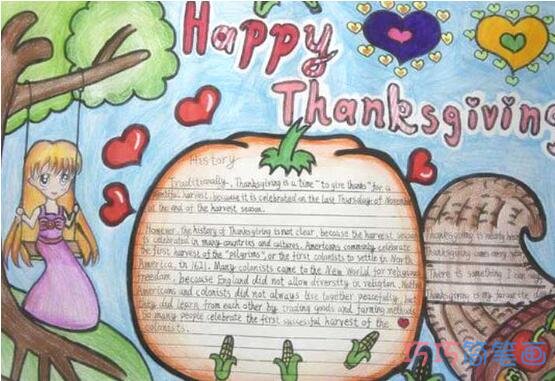 Happy
Thanksgiving
History
Traditionally, Thanksgiving is a time "to give thanks" for a
bountiful harvest, because it is celebrated on the last Thursday of November
at the end of the harvest season.
However, the history of Thanksgiving is not clear, because the harvest season
is celebrated in many countries and cultures. Americans commonly celebrate
the first harvest of the "pilgrims", or the first colonists to settle in North
America, in 1621. Many colonists came to the New World for religious
freedom, because England did not allow diversity in religion. Native
Americans and colonists did not always live together peacefully, but
they did learn from each other by trading goods and farming methods.
So many people celebrate the first successful harvest of the
colonists.
Thanksgiving is nearly here
Thanksgiving comes every year
There is something I can say
Thanksgiving is my favourite
巧巧简笔画